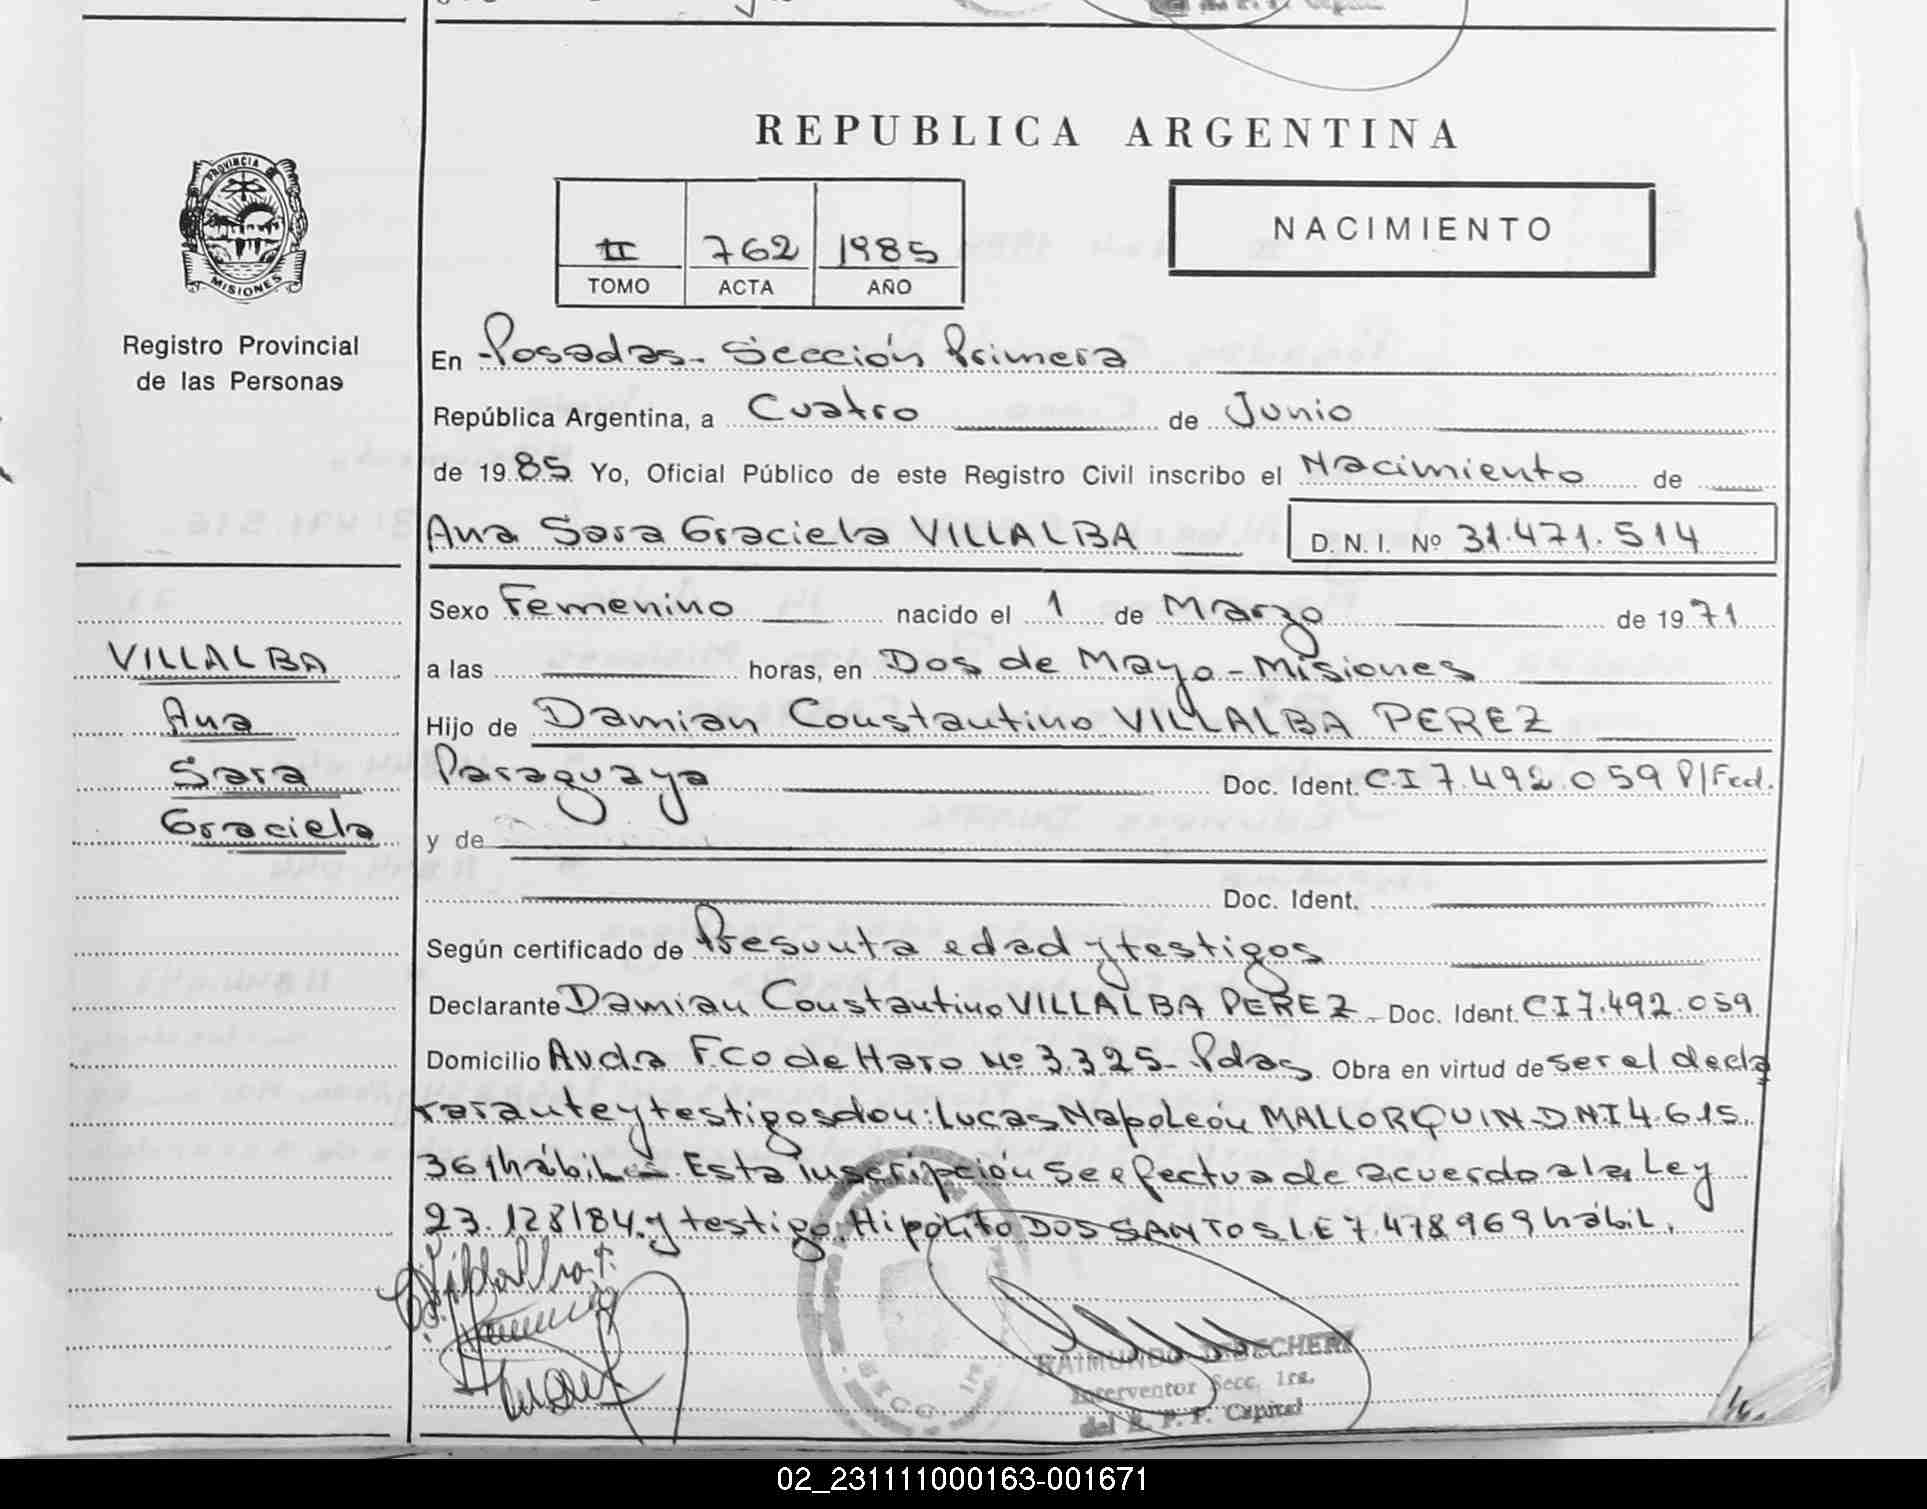 REPUBLICA ARGENTINA
PROVINCIA DE
MISIONES
Registro Provincial
de las Personas
II 762 1985
TOMO ACTA AÑO
NACIMIENTO
En Posadas - Sección Primera
República Argentina, a Cuatro de Junio
de 1985 Yo, Oficial Público de este Registro Civil inscribo el Nacimiento de
Ana Sara Graciela VILLALBA D. N. I. Nº 31.471.514
VILLALBA
Ana
Sara
Graciela
Sexo Femenino nacido el 1 de Marzo de 1971
a las horas, en Dos de Mayo - Misiones
Hijo de Damian Constantino VILLALBA PEREZ
Paraguaya Doc. Ident. C.I 7.492.059 P/Fed.
y de
Doc. Ident.
Según certificado de Presunta edad y testigos
Declarante Damian Constantino VILLALBA PEREZ Doc. Ident. CI 7.492.059
Domicilio Avda Fco de Haro Nº 3.325 - Pdas. Obra en virtud de ser el decla
rarante y testigos don: Lucas Napoleón MALLORQUIN D.N.I 4.615.
361 hábiles. Esta inscripción se efectua de acuerdo a la Ley
23.128/84. y testigo: Hipólito DOS SANTOS L.E 7.478 969 hábil.
SECC 1ra
RAIMUNDO
Interventor Secc. 1ra.
del R. P. P. Capital
02_231111000163-001671